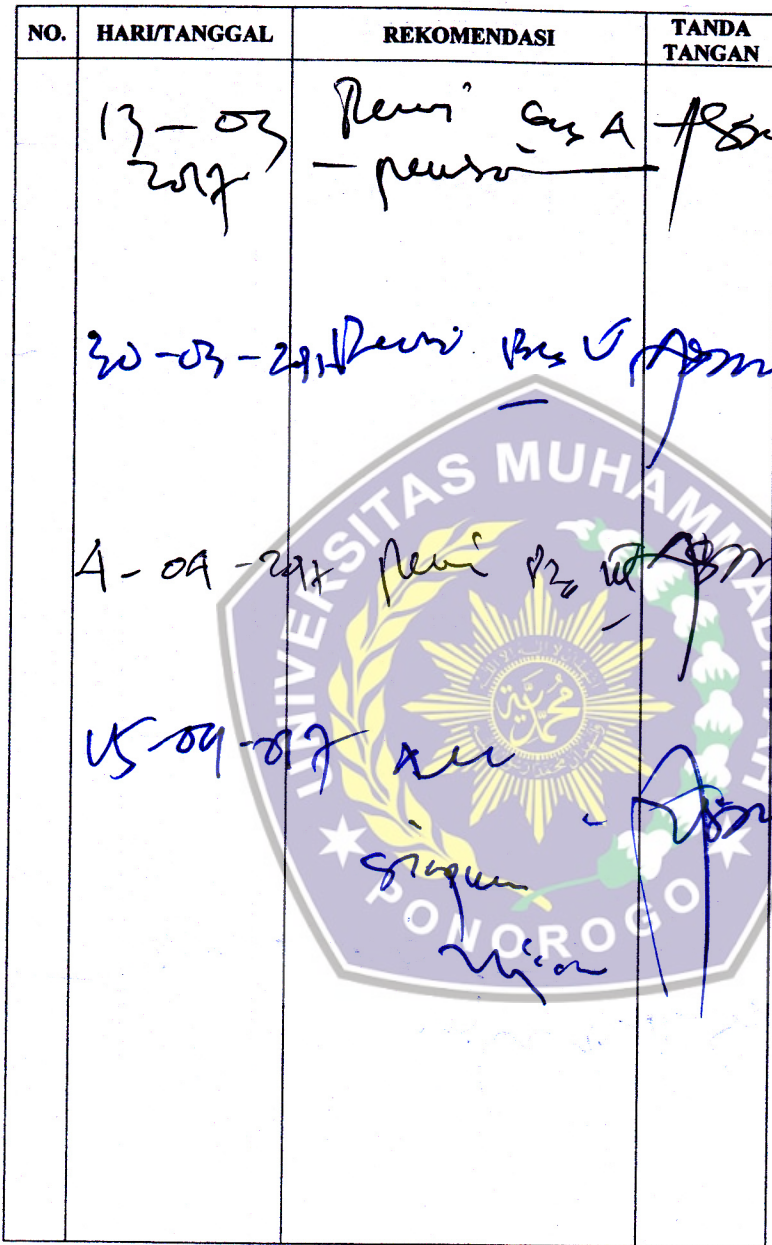 NO. HARI/TANGGAL REKOMENDASI TANDA TANGAN
13-03 Revisi Bab 4
2017 - penulisan
30-03-2017 Revisi Bab V
4-04-2017 Revisi Bab VI
15-04-2017 Acc
Siapkan
Ujian
UNIVERSITAS MUHAMMADIYAH
PONOROGO